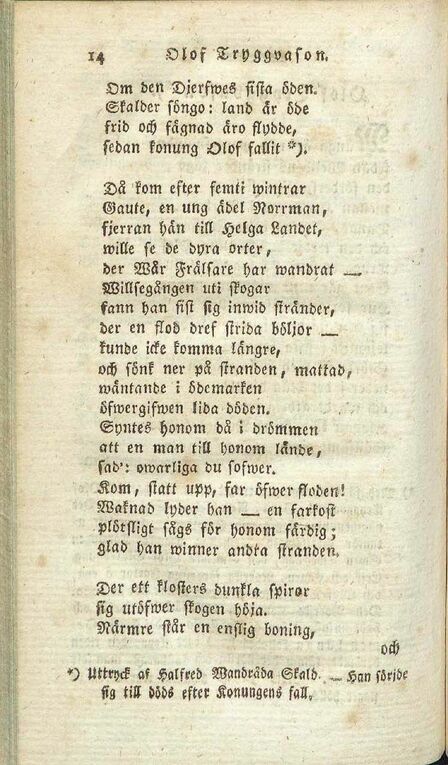 14 Olof Tryggvason.
Om den Djerfwes sista öden.
Skalder söngo: land är öde
frid och fägnad äro flydde,
sedan konung Olof fallit *).
Då kom efter femti wintrar
Gaute, en ung ädel Norrman,
fjerran hän till Helga Landet,
wille se de dyra orter,
der Wår Frälsare har wandrat —
Willsegången uti skogar
fann han sist sig inwid stränder,
der en flod dref strida böljor —
kunde icke komma längre,
och sönk ner på stranden, mattad,
wäntande i ödemarken
öfwergifwen lida döden.
Syntes honom då i drömmen
att en man till honom lände,
sad': owarliga du sofwer.
Kom, statt upp, far öfwer floden!
Waknad lyder han — en farkost
plötsligt sågs för honom färdig;
glad han winner andra stranden.
Der ett klosters dunkla spiror
sig utöfwer skogen höja.
Närmre står en enslig boning,
och
*) Uttryck af Halfred Wandråda Skald. — Han sörjde
sig till döds efter Konungens fall.